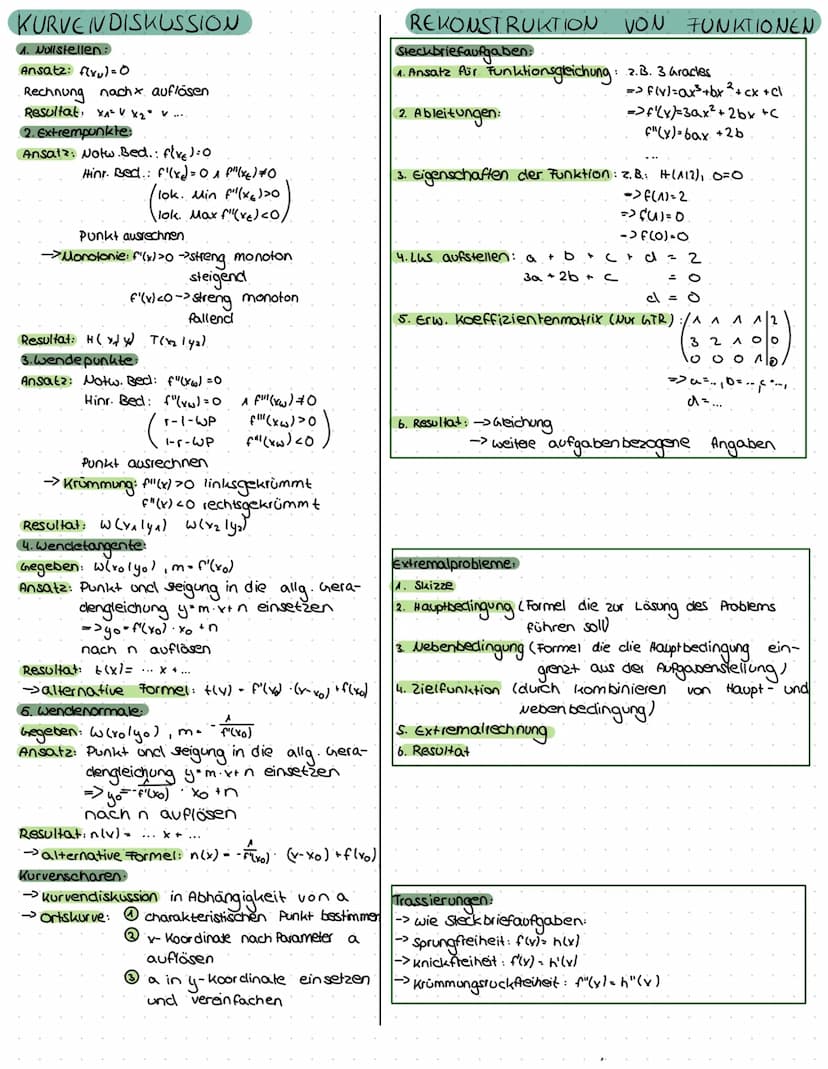 KURVENDISKUSSION
1. Nullstellen:
Ansatz: f(xN)=0
Rechnung nach x auflösen
Resultat: x1= v x2= v ...
2. Extrempunkte:
Ansatz: Notw. Bed.: f'(xE)=0
Hinr. Bed.: f'(xE)=0 ∧ f''(xE)≠0
(lok. Min f''(xE)>0
lok. Max f''(xE)<0)
Punkt ausrechnen
->Monotonie: f'(x)>0 ->streng monoton
steigend
f'(x)<0->streng monoton
fallend
Resultat: H( x1/y1) T(x2/y2)
3. Wendepunkte:
Ansatz: Notw. Bed: f''(xW)=0
Hinr. Bed: f''(xW)=0 ∧ f'''(xW)≠0
(r-l-WP f'''(xW)>0
l-r-WP f'''(xW)<0)
Punkt ausrechnen
-> Krümmung: f''(x)>0 linksgekrümmt
f''(x)<0 rechtsgekrümmt
Resultat: W(x1/y1) W(x2/y2)
4. Wendetangente:
Gegeben: W(x0/y0), m= f'(x0)
Ansatz: Punkt und Steigung in die allg. Gera-
dengleichung y=m·x+n einsetzen
=>y0=f'(x0)·x0+n
nach n auflösen
Resultat: t(x)= ... x+...
->alternative Formel: t(x)= f'(x0)·(x-x0)+f(x0)
5. Wendenormale:
Gegeben: W(x0/y0), m= -1/f'(x0)
Ansatz: Punkt und Steigung in die allg. Gera-
dengleichung y=m·x+n einsetzen
=> y0=-1/f'(x0)·x0+n
nach n auflösen
Resultat: n(x)= ... x+...
->alternative Formel: n(x)= -1/f'(x0)·(x-x0)+f(x0)
Kurvenscharen:
->Kurvendiskussion in Abhängigkeit von a
->Ortskurve: ① charakteristischen Punkt bestimmen
② x-Koordinate nach Parameter a
auflösen
③ a in y-Koordinate einsetzen
und vereinfachen
REKONSTRUKTION VON FUNKTIONEN
Steckbriefaufgaben:
1. Ansatz für Funktionsgleichung: z.B. 3 Grades
=> f(x)=ax³+bx²+cx+d
2. Ableitungen: =>f'(x)=3ax²+2bx+c
f''(x)=6ax+2b
...
3. Eigenschaften der Funktion: z.B.: H(1|2), 0=0
->f(1)=2
=>f'(1)=0
->f(0)=0
4. LGS aufstellen: a + b + c + d = 2
3a+2b+c = 0
d = 0
5. Erw. Koeffizientenmatrix (Nur GTR): (1 1 1 1|2
3 2 1 0|0
0 0 0 1|0)
=>a=.., b=.., c=..,
d=...
6. Resultat: ->Gleichung
->weitere aufgabenbezogene Angaben
Extremalprobleme:
1. Skizze
2. Hauptbedingung (Formel die zur Lösung des Problems
führen soll)
3. Nebenbedingung (Formel die die Hauptbedingung ein-
grenzt aus der Aufgabenstellung)
4. Zielfunktion (durch kombinieren von Haupt- und
Nebenbedingung)
5. Extremalrechnung
6. Resultat
Trassierungen:
-> Wie Steckbriefaufgaben:
-> Sprungfreiheit: f(x)= h(x)
-> Knickfreiheit: f'(x)= h'(x)
-> Krümmungsruckfreiheit: f''(x)= h''(x)